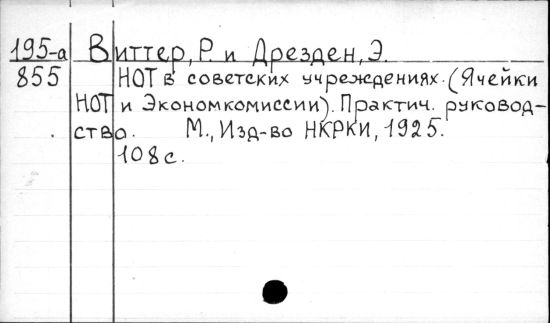 195-а Виттер, Р. и Дрезден, Э.
855 НОТ в советских учреждениях. (Ячейки
НОТ и Экономкомиссии). Практич. руковод-
ство. М., Изд-во НКРКИ, 1925.
108 с.